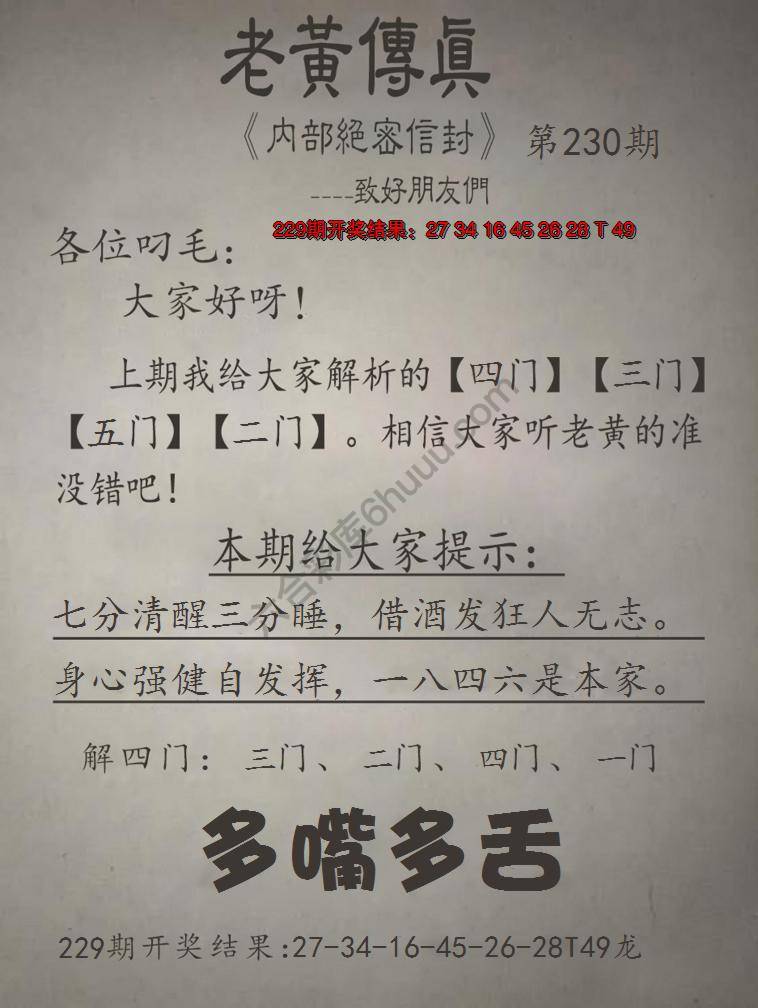 老黃傳眞
《内部絕密信封》 第230期
----致好朋友們
229期开奖结果：27 34 16 45 26 28 T 49
各位叼毛：
大家好呀！
上期我给大家解析的【四门】【三门】
【五门】【二门】。相信大家听老黄的准
没错吧！
六合彩库6huuu.com
本期给大家提示：
七分清醒三分睡，借酒发狂人无志。
身心强健自发挥，一八四六是本家。
解四门：三门、二门、四门、一门
多嘴多舌
229期开奖结果:27-34-16-45-26-28T49龙